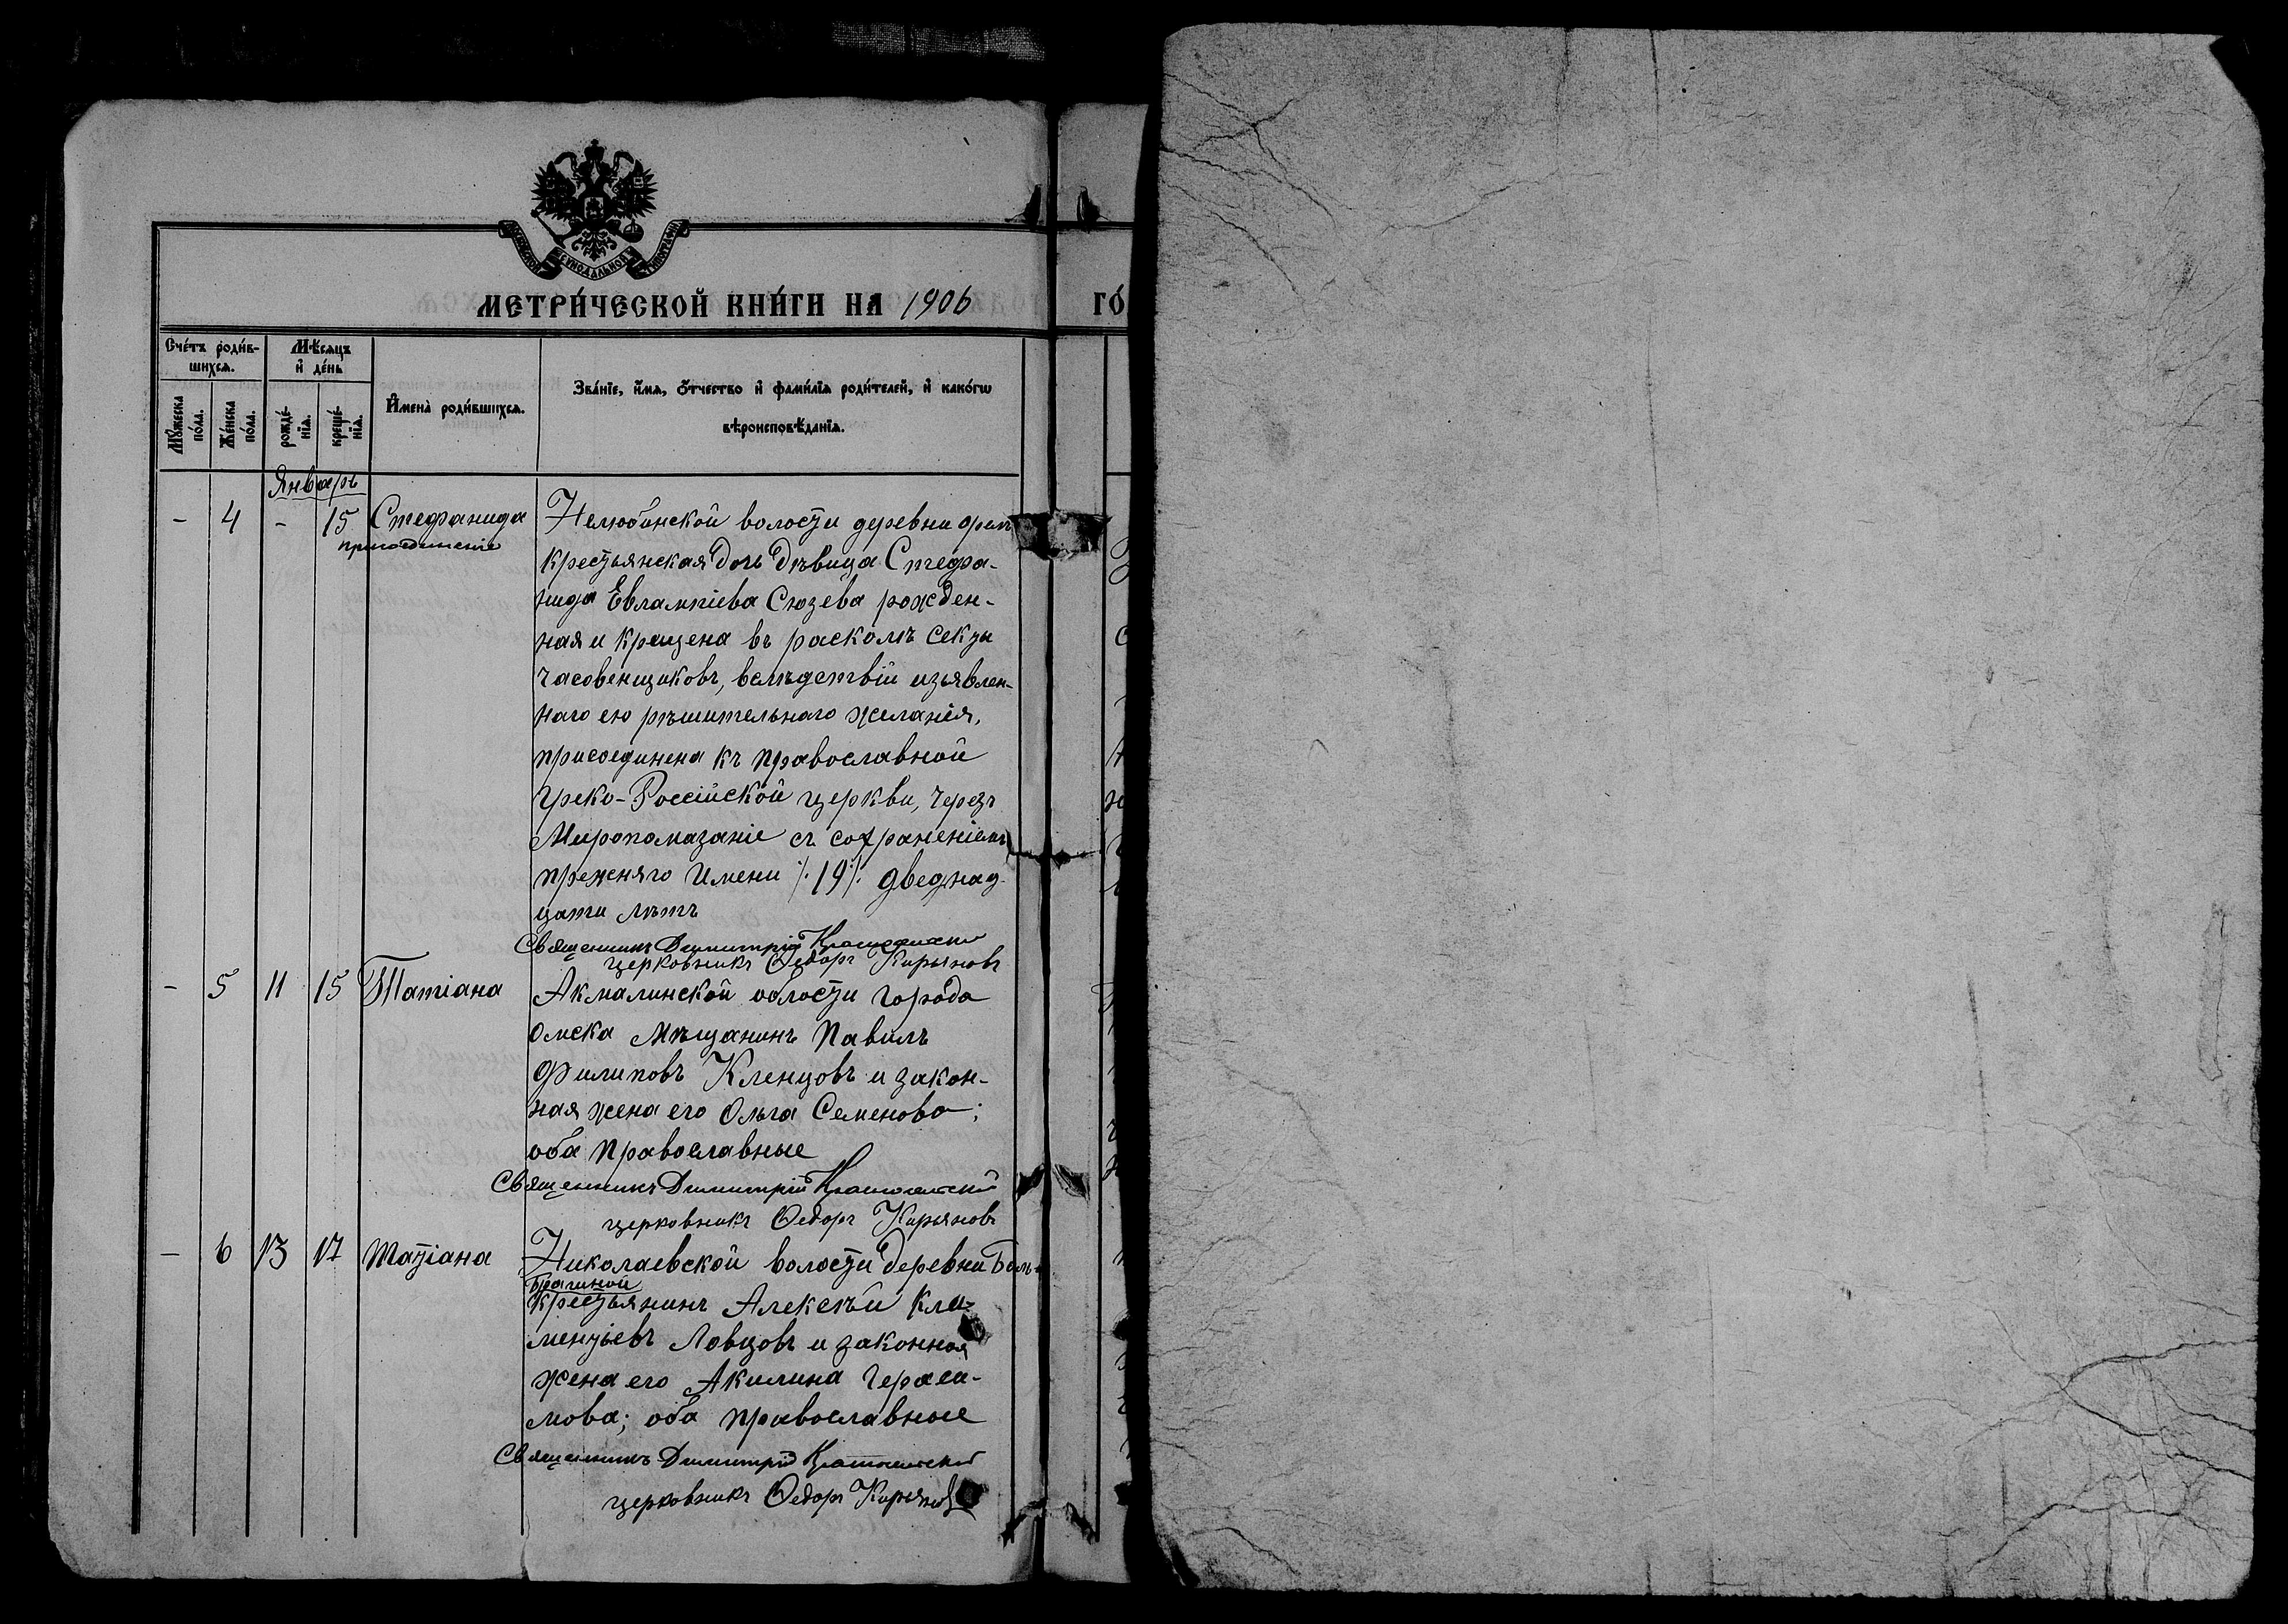 СѶНОДАЛЬНОЙ
МЕТРИ́ЧЕСКОЙ КНИ́ГИ НА 1906
ГО́
Сче́тъ роди́в-
шихсѧ.
Мѣ́сѧцъ
и҆ де́нь
Мꙋ́жеска
по́ла.
Же́нска
по́ла.
рожде́-
нїѧ.
креще́-
нїѧ.
И҆мена̀ роди́вшихсѧ.
Зва́нїе, и҆́мѧ, ѻ҆́тчество и҆ фами́лїѧ роди́телей, и҆ како́гѡ
вѣроисповѣ́данїѧ.
Январь
- 4 - 15 Стефанида
присоединеніе
Нелюбинской волости деревни
крестьянская дочь дѣвица Стефа-
нида Евлампіева Сюзева рожден-
ная и крещена въ расколѣ секты
часовенщиковъ, вслѣдствіи изъявлен-
наго ею рѣшительнаго желанія,
присоединена къ православной
Греко-Россійской церкви, черезъ
Миропомазаніе съ сохраненіемъ
прежняго имени /:19:/ дведнад-
цати лѣтъ
Священникъ Димитрій
церковникъ Ѳедоръ Кирьяновъ
- 5 11 15 Татіана
Акмалинской области города
Омска Мѣщанинъ Павилъ
Филиповъ Кленцовъ и закон-
ная жена его Ольга Семенова;
оба православные
Священникъ Димитрій
церковникъ Ѳедоръ Кирьяновъ
- 6 13 17 Татіана
Николаевской волости деревни
Брагиной
крестьянинъ Алексѣй Кли-
ментьевъ Ловцовъ и законная
жена его Акилина Гераси-
мова; оба православные
Священникъ Димитрій
церковникъ Ѳедоръ Кирьяновъ